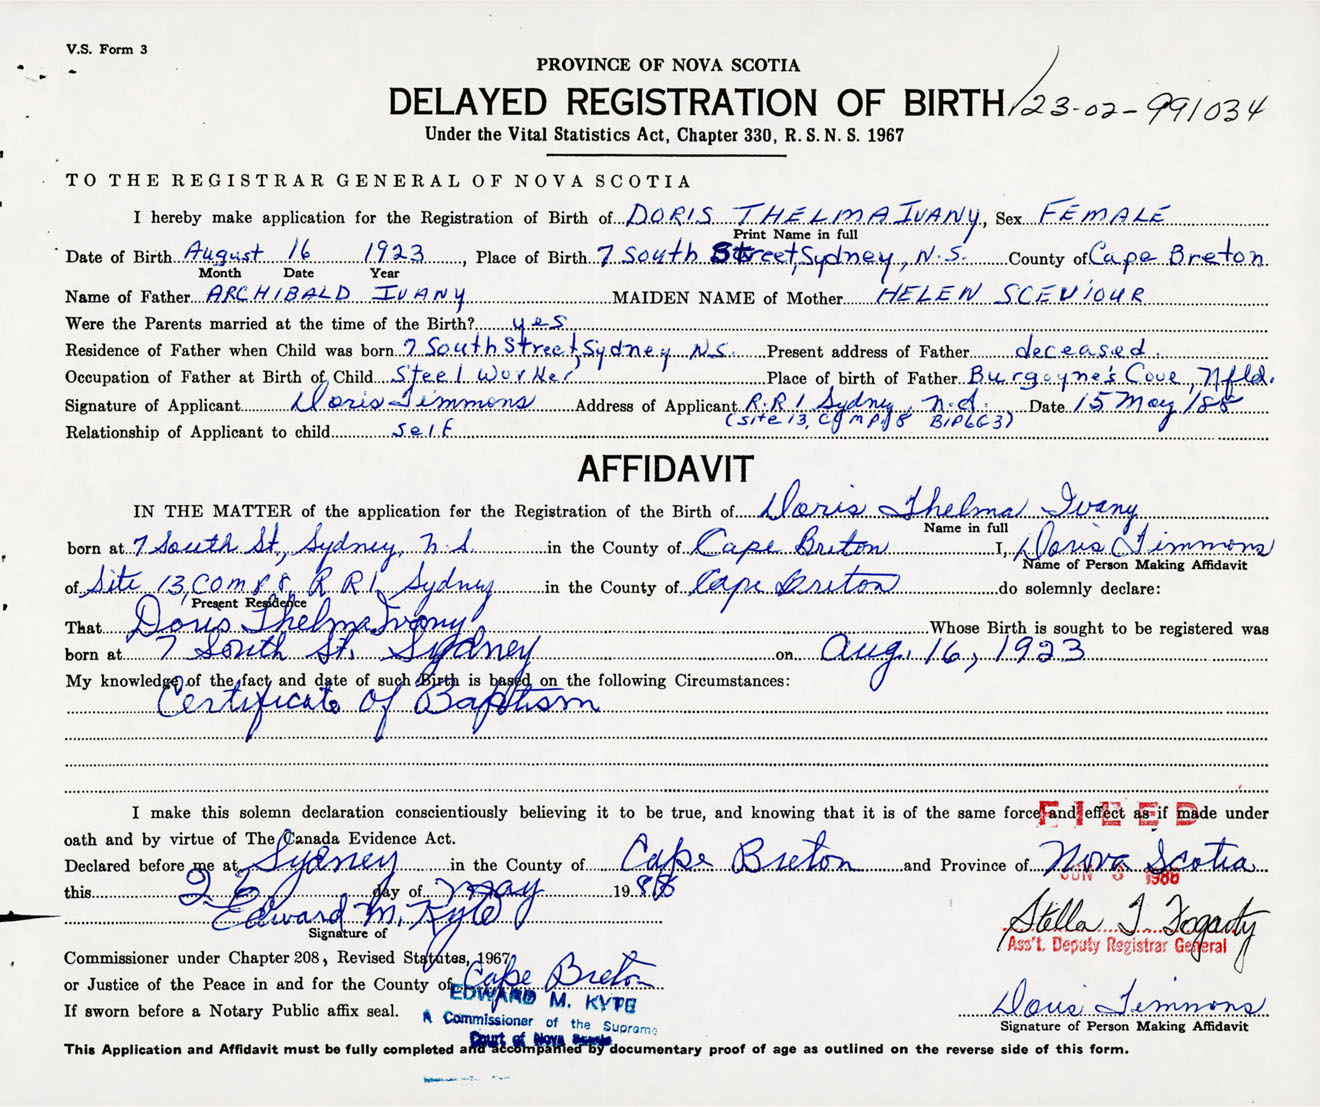 V.S. Form 3
PROVINCE OF NOVA SCOTIA
DELAYED REGISTRATION OF BIRTH 123-02-991034
Under the Vital Statistics Act, Chapter 330, R.S.N.S. 1967
TO THE REGISTRAR GENERAL OF NOVA SCOTIA
I hereby make application for the Registration of Birth of DORIS THELMA IVANY, Sex FEMALE
Print Name in full
Date of Birth August 16 1923, Place of Birth 7 South Street, Sydney, N.S. County of Cape Breton
Month Date Year
Name of Father ARCHIBALD IVANY MAIDEN NAME of Mother HELEN SCEVIOUR
Were the Parents married at the time of the Birth? yes
Residence of Father when Child was born 7 South Street, Sydney N.S. Present address of Father deceased.
Occupation of Father at Birth of Child Steel Worker Place of birth of Father Burgoyne's Cove, Nfld.
Signature of Applicant Doris Timmons Address of Applicant R.R.1 Sydney, N.S. Date 15 May '88
(site 13, Comp 8 B1P6G3)
Relationship of Applicant to child self
AFFIDAVIT
IN THE MATTER of the application for the Registration of the Birth of Doris Thelma Ivany
Name in full
born at 7 South St., Sydney, N.S. in the County of Cape Breton I, Doris Timmons
Name of Person Making Affidavit
of Site 13, Comp 8, R R 1, Sydney in the County of Cape Breton do solemnly declare:
Present Residence
That Doris Thelma Ivany Whose Birth is sought to be registered was
born at 7 South St. Sydney on Aug. 16, 1923
My knowledge of the fact and date of such Birth is based on the following Circumstances:
Certificate of Baptism
I make this solemn declaration conscientiously believing it to be true, and knowing that it is of the same force and effect as if made under
FILED
oath and by virtue of The Canada Evidence Act.
Declared before me at Sydney in the County of Cape Breton and Province of Nova Scotia
this 26 day of May 1988
JUN
Edward M. Kyte
Signature of
Stella T. Fogarty
Ass't. Deputy Registrar General
Commissioner under Chapter 208, Revised Statutes, 1967
or Justice of the Peace in and for the County of Cape Breton
EDWARD M. KYTE
If sworn before a Notary Public affix seal.
A Commissioner of the Supreme
Court of Nova Scotia
Doris Timmons
Signature of Person Making Affidavit
This Application and Affidavit must be fully completed and accompanied by documentary proof of age as outlined on the reverse side of this form.